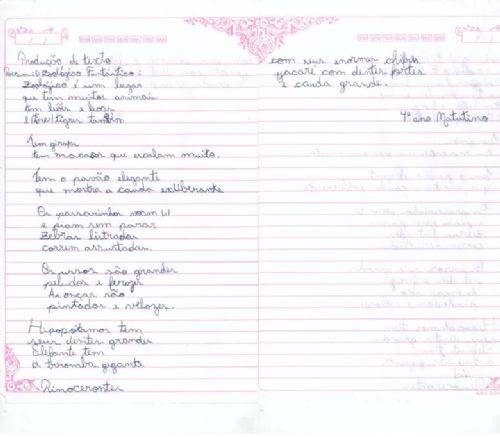 Produção de texto
Poesia: O Zoológico Fantástico:
Zoológico é um lugar
que tem muitos animais
tem leões e leoas
tigres também
Tem girafa
tem macacos que escalam muito.
Tem o pavão elegante
que mostra a cauda exUberante
Os passarinhos voam
e piam sem parar
Zebras listradas
correm assustadas.
Os ursos são grandes
peludos e ferozes
As onças são
pintadas e velozes.
Hipopótamos tem
seus dentes grandes
Elefante tem
a tromba gigante
Rinocerontes
com seus enormes chifres
jacaré com dentes fortes
e cauda grande.
4º ano Matutino